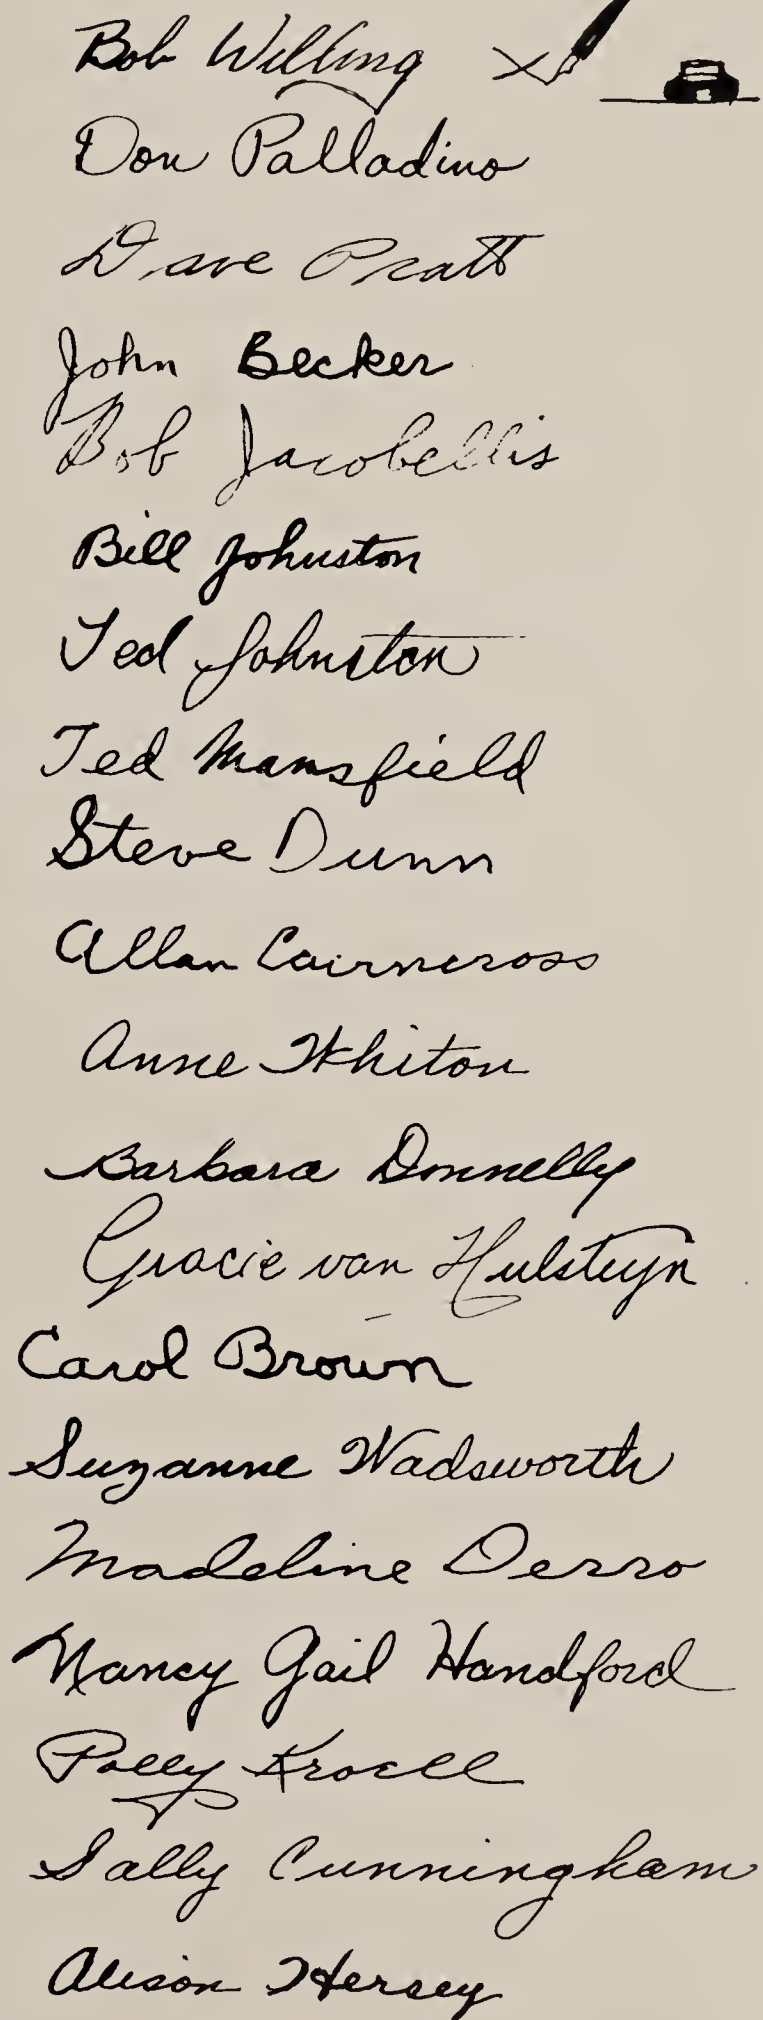 Bob Willing
Don Palladino
Dave Pratt
John Becker
Bob Jacobellis
Bill Johnston
Ted Johnston
Ted Mansfield
Steve Dunn
Allan Cairncross
Anne Whiton
Barbara Donnelly
Gracie van Hulsteyn
Carol Brown
Suzanne Wadsworth
Madeline Derro
Nancy Gail Handford
Polly Kroell
Sally Cunningham
Alison Hersey